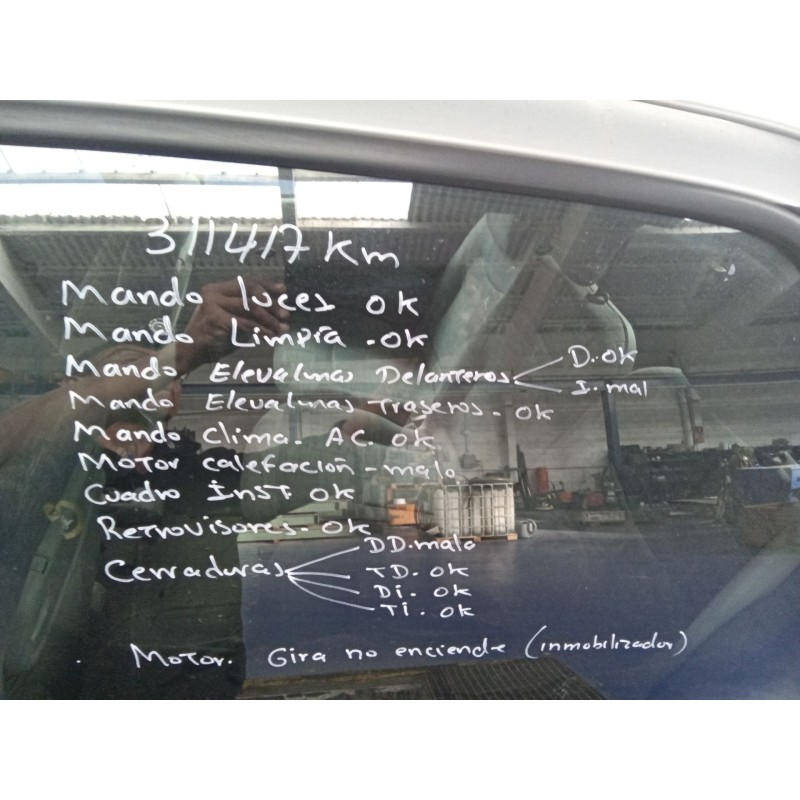 311417 Km
Mando luces OK
Mando Limpia . OK
Mando Elevalunas Delanteros
D. OK
I. mal
Mando Elevalunas Traseros - OK
Mando Clima. AC. OK
Motor calefacion - malo
Cuadro Inst. OK
Retrovisores - OK
Cerraduras
DD. malo
TD. OK
Di. OK
Ti. OK
. Motor. Gira no enciende (inmobilizador)